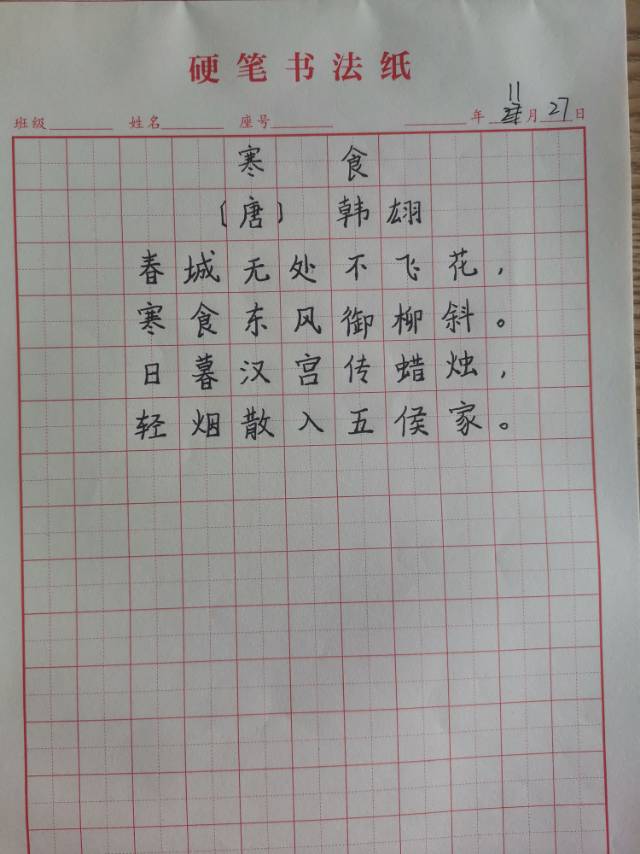 硬笔书法纸
班级 姓名 座号 年 11月27日
寒食
〔唐〕 韩翃
春城无处不飞花，
寒食东风御柳斜。
日暮汉宫传蜡烛，
轻烟散入五侯家。